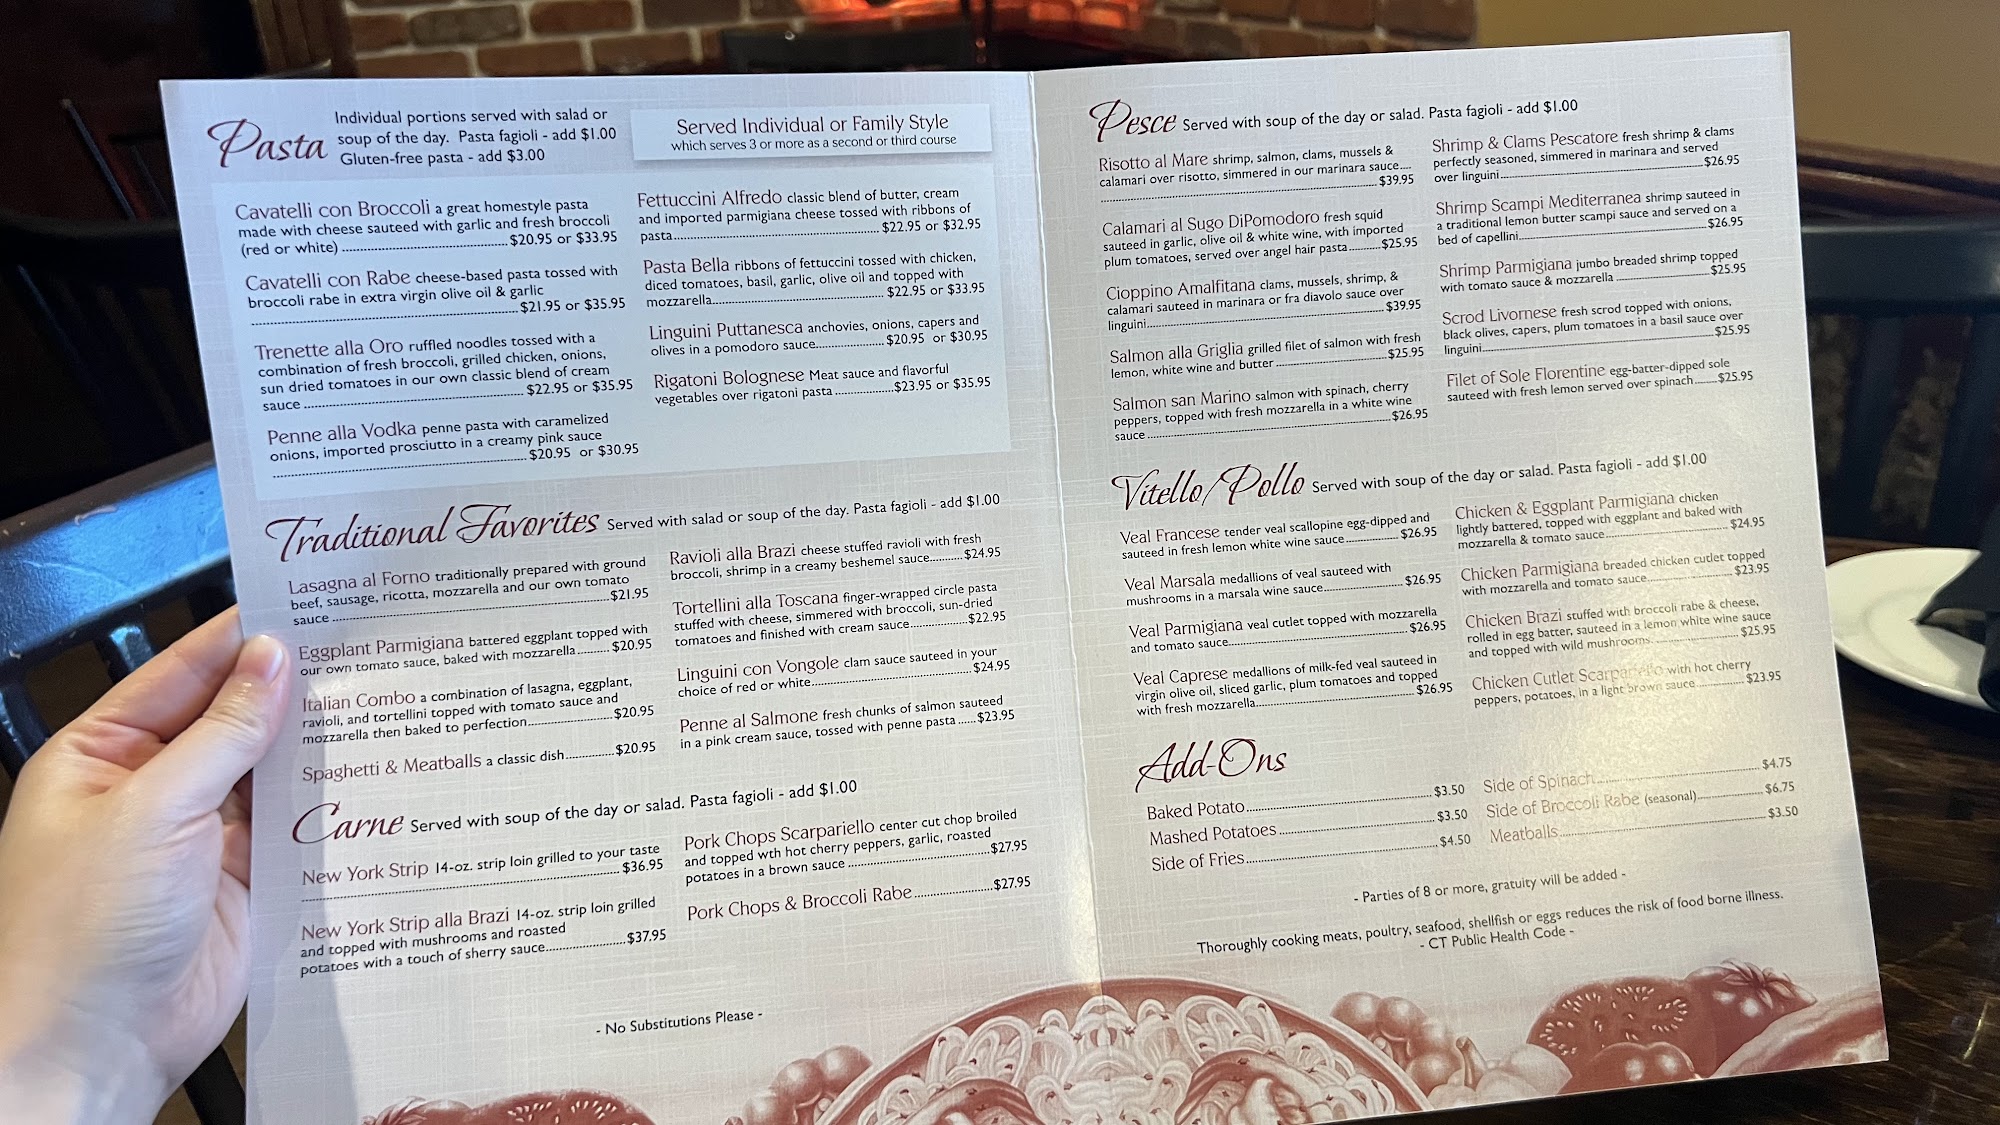 Pasta
Individual portions served with salad or
soup of the day. Pasta fagioli - add $1.00
Gluten-free pasta - add $3.00
Served Individual or Family Style
which serves 3 or more as a second or third course
Cavatelli con Broccoli a great homestyle pasta
made with cheese sauteed with garlic and fresh broccoli
(red or white) $20.95 or $33.95
Cavatelli con Rabe cheese-based pasta tossed with
broccoli rabe in extra virgin olive oil & garlic
$21.95 or $35.95
Trenette alla Oro ruffled noodles tossed with a
combination of fresh broccoli, grilled chicken, onions,
sun dried tomatoes in our own classic blend of cream
sauce $22.95 or $35.95
Penne alla Vodka penne pasta with caramelized
onions, imported prosciutto in a creamy pink sauce
$20.95 or $30.95
Fettuccini Alfredo classic blend of butter, cream
and imported parmigiana cheese tossed with ribbons of
pasta $22.95 or $32.95
Pasta Bella ribbons of fettuccini tossed with chicken,
diced tomatoes, basil, garlic, olive oil and topped with
mozzarella $22.95 or $33.95
Linguini Puttanesca anchovies, onions, capers and
olives in a pomodoro sauce $20.95 or $30.95
Rigatoni Bolognese Meat sauce and flavorful
vegetables over rigatoni pasta $23.95 or $35.95
Traditional Favorites Served with salad or soup of the day. Pasta fagioli - add $1.00
Lasagna al Forno traditionally prepared with ground
beef, sausage, ricotta, mozzarella and our own tomato
sauce $21.95
Eggplant Parmigiana battered eggplant topped with
our own tomato sauce, baked with mozzarella $20.95
Italian Combo a combination of lasagna, eggplant,
ravioli, and tortellini topped with tomato sauce and
mozzarella then baked to perfection $20.95
Spaghetti & Meatballs a classic dish $20.95
Ravioli alla Brazi cheese stuffed ravioli with fresh
broccoli, shrimp in a creamy beshemel sauce $24.95
Tortellini alla Toscana finger-wrapped circle pasta
stuffed with cheese, simmered with broccoli, sun-dried
tomatoes and finished with cream sauce $22.95
Linguini con Vongole clam sauce sauteed in your
choice of red or white $24.95
Penne al Salmone fresh chunks of salmon sauteed
in a pink cream sauce, tossed with penne pasta $23.95
Carne Served with soup of the day or salad. Pasta fagioli - add $1.00
New York Strip 14-oz. strip loin grilled to your taste
$36.95
New York Strip alla Brazi 14-oz. strip loin grilled
and topped with mushrooms and roasted
potatoes with a touch of sherry sauce $37.95
Pork Chops Scarpariello center cut chop broiled
and topped wth hot cherry peppers, garlic, roasted
potatoes in a brown sauce $27.95
Pork Chops & Broccoli Rabe $27.95
- No Substitutions Please -
Pesce Served with soup of the day or salad. Pasta fagioli - add $1.00
Risotto al Mare shrimp, salmon, clams, mussels &
calamari over risotto, simmered in our marinara sauce
$39.95
Calamari al Sugo DiPomodoro fresh squid
sauteed in garlic, olive oil & white wine, with imported
plum tomatoes, served over angel hair pasta $25.95
Cioppino Amalfitana clams, mussels, shrimp, &
calamari sauteed in marinara or fra diavolo sauce over
linguini $39.95
Salmon alla Griglia grilled filet of salmon with fresh
lemon, white wine and butter $25.95
Salmon san Marino salmon with spinach, cherry
peppers, topped with fresh mozzarella in a white wine
sauce $26.95
Shrimp & Clams Pescatore fresh shrimp & clams
perfectly seasoned, simmered in marinara and served
over linguini $26.95
Shrimp Scampi Mediterranea shrimp sauteed in
a traditional lemon butter scampi sauce and served on a
bed of capellini $26.95
Shrimp Parmigiana jumbo breaded shrimp topped
with tomato sauce & mozzarella $25.95
Scrod Livornese fresh scrod topped with onions,
black olives, capers, plum tomatoes in a basil sauce over
linguini $25.95
Filet of Sole Florentine egg-batter-dipped sole
sauteed with fresh lemon served over spinach $25.95
Vitello/Pollo Served with soup of the day or salad. Pasta fagioli - add $1.00
Veal Francese tender veal scallopine egg-dipped and
sauteed in fresh lemon white wine sauce $26.95
Veal Marsala medallions of veal sauteed with
mushrooms in a marsala wine sauce $26.95
Veal Parmigiana veal cutlet topped with mozzarella
and tomato sauce $26.95
Veal Caprese medallions of milk-fed veal sauteed in
virgin olive oil, sliced garlic, plum tomatoes and topped
with fresh mozzarella $26.95
Chicken & Eggplant Parmigiana chicken
lightly battered, topped with eggplant and baked with
mozzarella & tomato sauce $24.95
Chicken Parmigiana breaded chicken cutlet topped
with mozzarella and tomato sauce $23.95
Chicken Brazi stuffed with broccoli rabe & cheese,
rolled in egg batter, sauteed in a lemon white wine sauce
and topped with wild mushrooms $25.95
Chicken Cutlet Scarpariello with hot cherry
peppers, potatoes, in a light brown sauce $23.95
Add-Ons
Baked Potato $3.50
Mashed Potatoes $3.50
Side of Fries $4.50
Side of Spinach $4.75
Side of Broccoli Rabe (seasonal) $6.75
Meatballs $3.50
- Parties of 8 or more, gratuity will be added -
Thoroughly cooking meats, poultry, seafood, shellfish or eggs reduces the risk of food borne illness.
- CT Public Health Code -